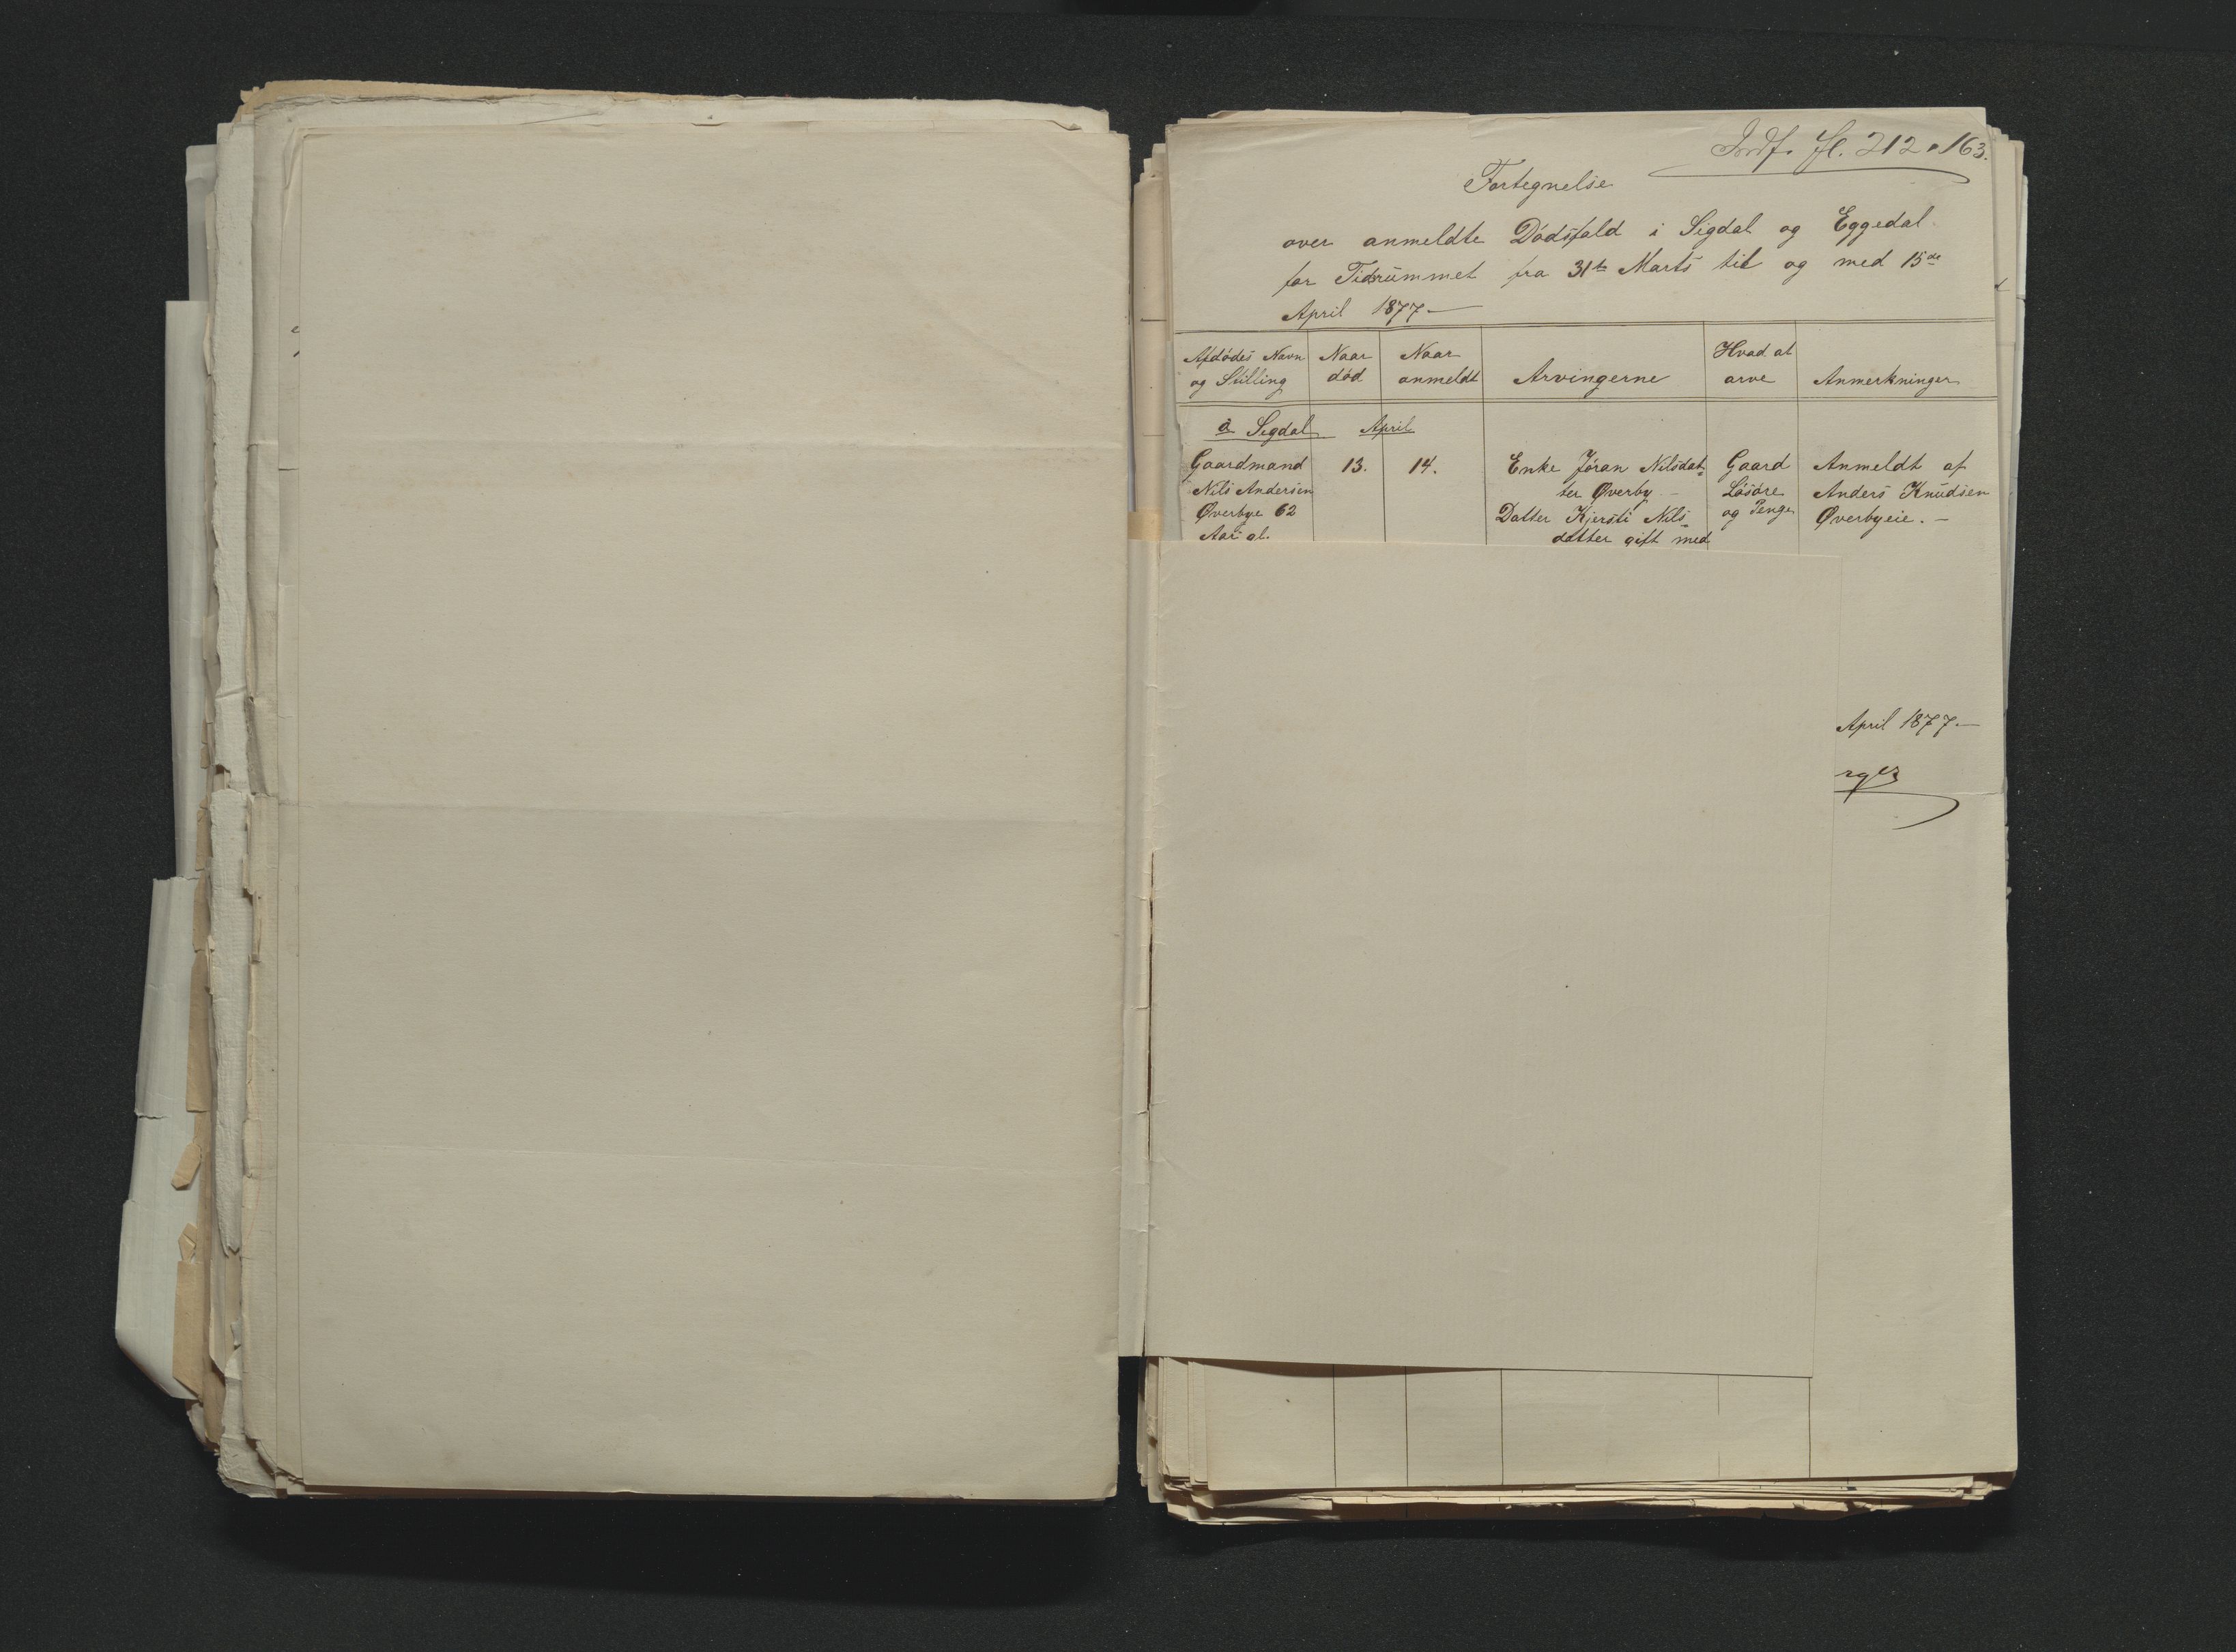 Indf. fl. 212 & 163.
Fortegnelse
over anmeldte Dødsfald i Sigdal og Eggedal
for Tidsrummet fra 31te Marts til og med 15de
April 1877 —
Afdødes Navn og Stilling
Naar død
Naar anmeldt
Arvingerne
Hvad at arve
Anmerkninger
a Sigdal April
Gaardmand 13. 14. Enke Jøran Nilsdat= Gaard Anmeldt af
Nils Andersen ter Øverby — Løsøre Anders Knudsen
Øverbye 62 Datter Kjersti Nils= og Penge Øverbyeie. —
Aar gl. datter gift med
April 1877. —